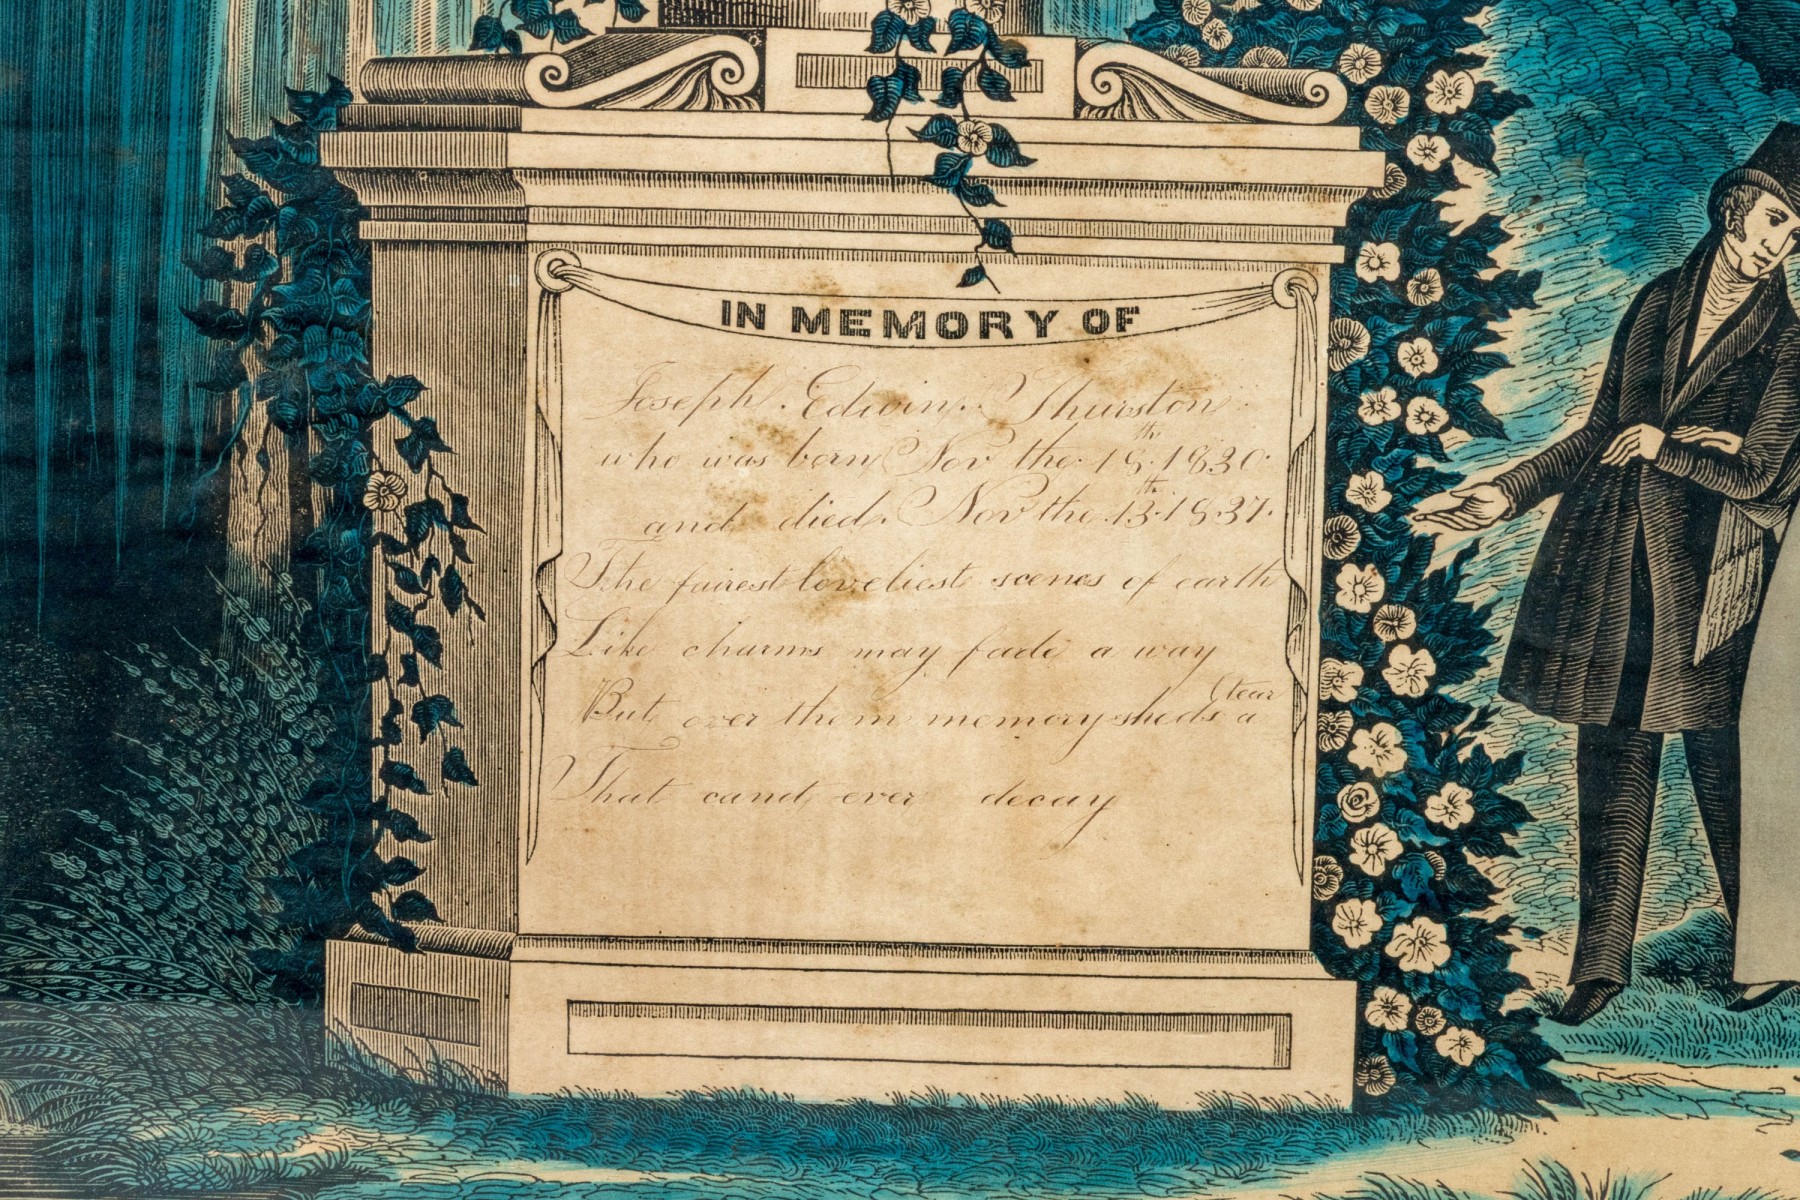 IN MEMORY OF
Joseph Edwin Thurston
who was born Nov the 18th 1830
and died Nov the 13th 1837
The fairest loveliest scenes of earth
Like charms may fade a way
But over them memory sheds a (tear
That cand ever decay